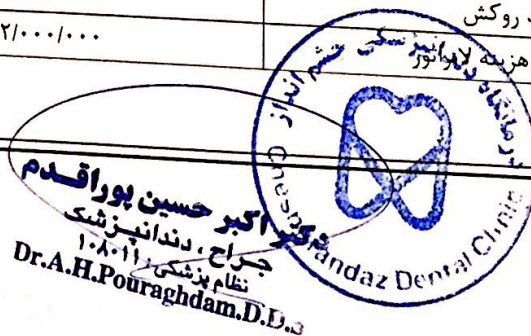 روکش
هزینه لابراتور
۲/۰۰۰/۰۰۰
درمانگاه دندانپزشکی چشم انداز
andaz Dental Clinic
دکتر اکبر حسین پوراقدم
جراح ، دندانپزشک
نظام پزشکی: ۱۰۸۰۱۱
Dr.A.H.Pouraghdam.D.D.S